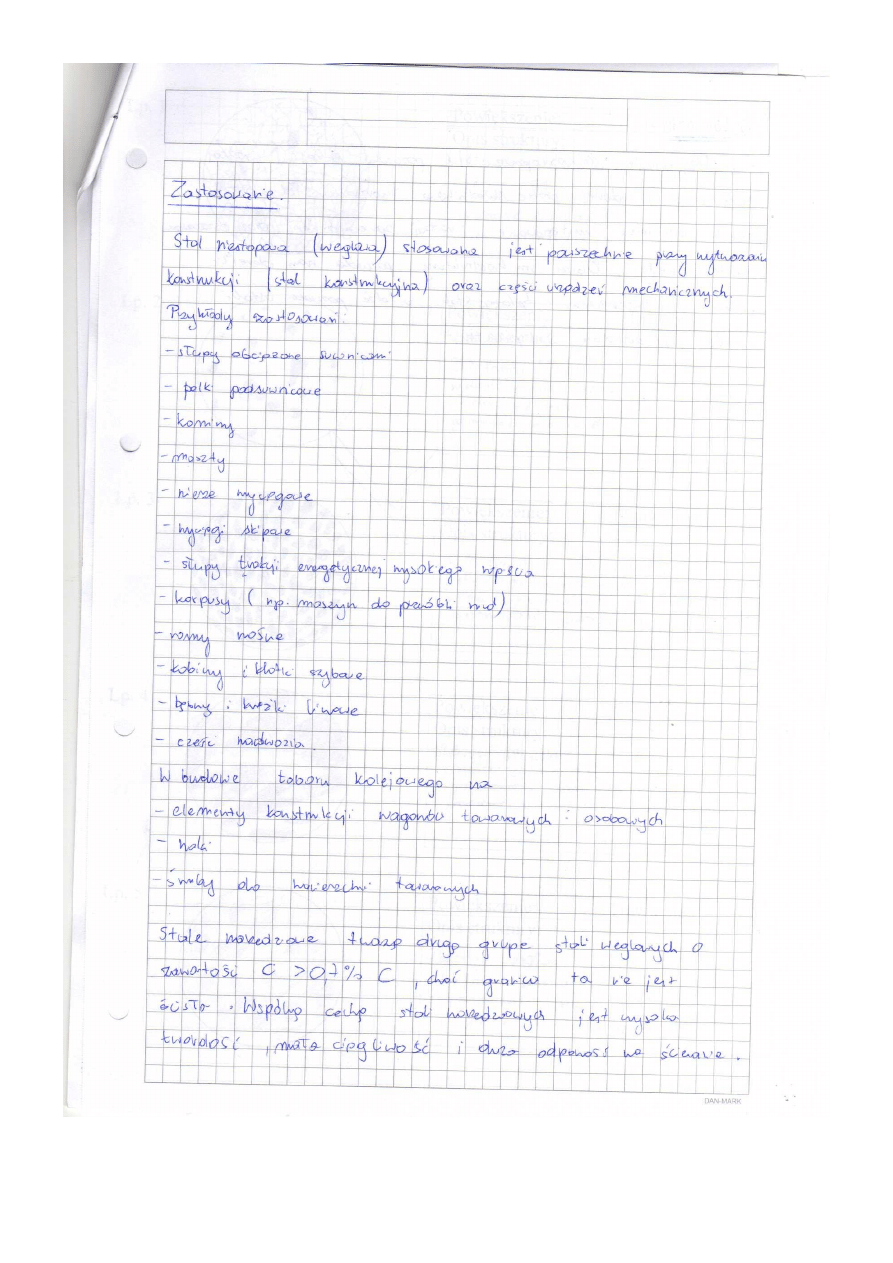 Zastosowanie.
Stal niestopowa (węglowa) stosowana jest powszechnie przy wytwarzaniu
konstrukcji (stal konstrukcyjna) oraz części urządzeń mechanicznych.
Przykłady zastosowań:
- słupy obciążone suwnicami
- belki podsuwnicowe
- kominy
- maszty
- wieże wyciągowe
- wyciągi skipowe
- słupy trakcji energetycznej wysokiego napięcia
- korpusy (np. maszyn do przeróbki rud)
- ramy nośne
- kabiny i klatki szybowe
- bębny i krążki linowe
- części nadwozia
W budowie taboru kolejowego na
- elementy konstrukcji wagonów towarowych i osobowych
- haki
- śruby dla towarowych
Stale narzędziowe tworzą drugą grupę stali węglowych o
zawartości C > 0,7% C , choć granica ta nie jest
ścisła. Wspólną cechą stali narzędziowych jest wysoka
twardość , mała ciągliwość i duża odporność na ścieranie.
DAN-MARK